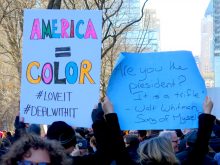 AMERICA
=
COLOR
#LOVEIT
#DEALWITHIT
Are you the
president?
It is a trifle.
- Walt Whitman
Song of Myself